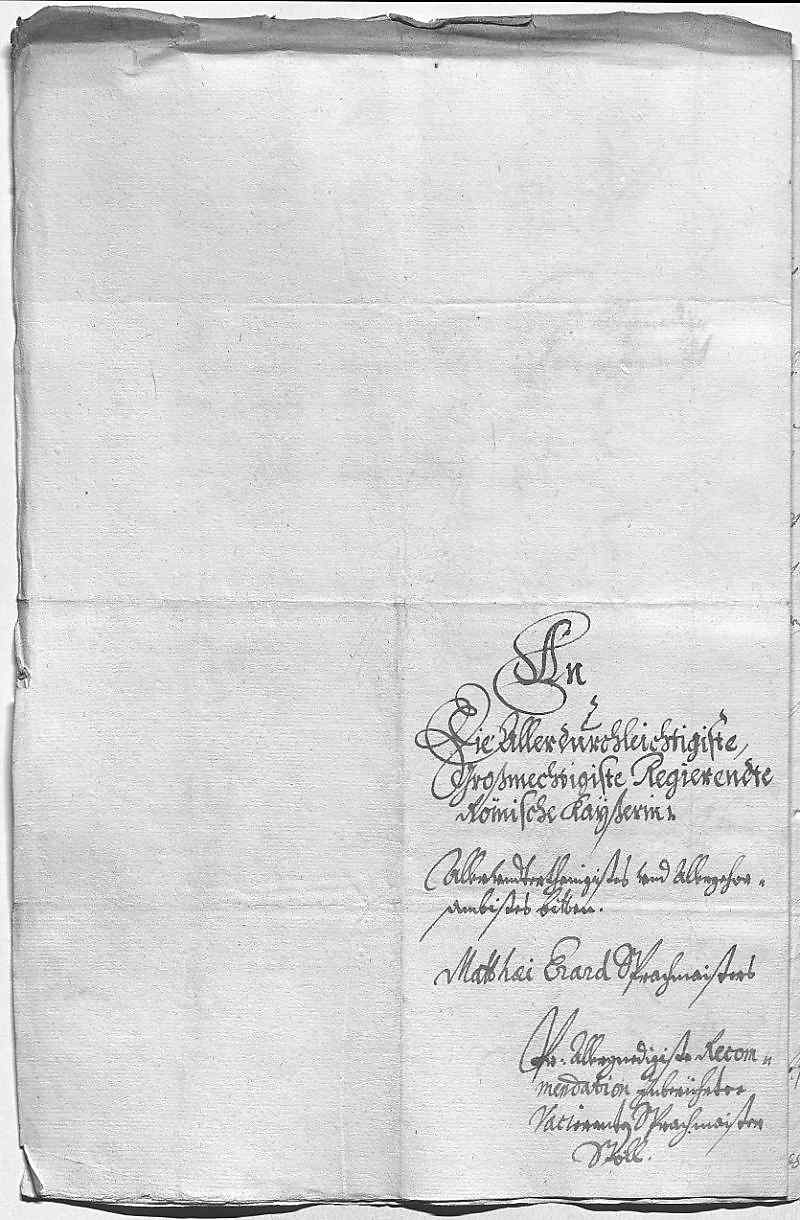 An
Die Allerdurchleichtigiste,
Großmechtigiste Regierendte
Römische Kayßerin.
Allerundterthenigistes und Allergehor-
sambistes bitten.
Matthæi Erard Sprachmaisters
Pr. Allergnedigiste Recom-
mendation zu
Vacierenten Sprachmaister
Stöll.